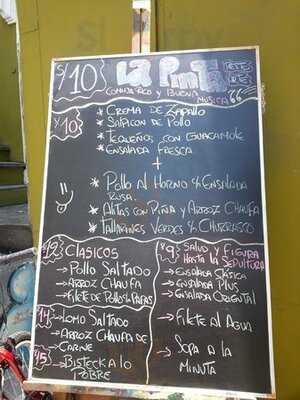 S/10 La Pinta
Comida rico y Buena
Musica
S/10
* Crema de Zapallo
* Salpicon de Pollo
* Tequeños con Guacamole
* Ensalada Fresca
+
* Pollo al Horno & Ensalada
Rusa
* Alitas con Piña y Arroz Chaufa
* Tallarines Verdes & Churrasco
S/12 Clasicos
→ Pollo Saltado
→ Arroz Chaufa
→ Filete de Pollo & Papas
14 → Lomo Saltado
→ Arroz Chaufa de
Carne
15 → Bisteck a lo
Pobre
9 Salud y Figura
Hasta la Sepultura
→ Ensalada Clásica
→ Ensalada Plus
→ Ensalada Oriental
→ Filete al Agua
→ Sopa a la
Minuta